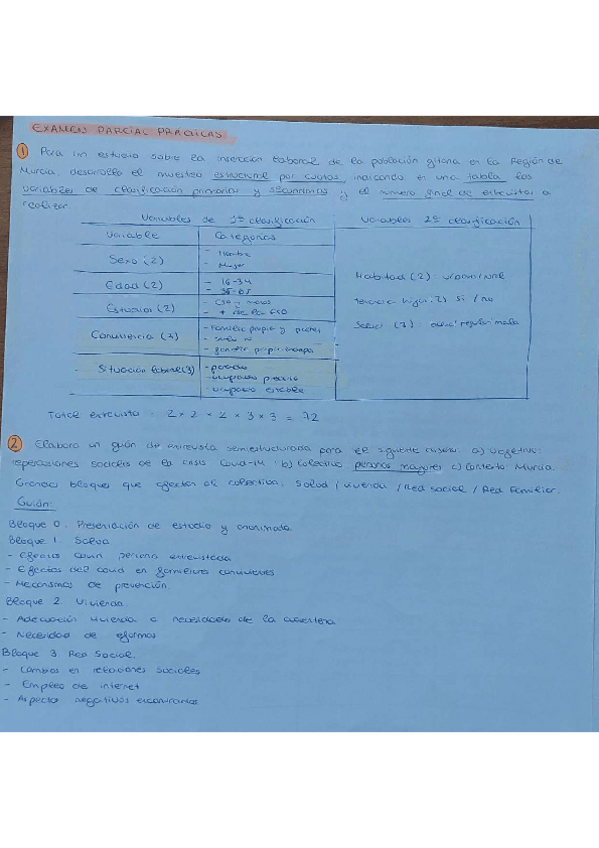 EXAMEN PARCIAL PRACTICAS
1 Para un estudio sobre la inserción laboral de la población gitana en la Región de
Murcia, desarrolla el muestreo estructural por cuotas, indicando en una tabla las
variables de clasificación primarias y secundarias y el numero final de entrevistas a
realizar
Variables de 1ª clasificación
Variables 2ª clasificación
Variable
Categorias
Sexo (2)
- Hombre
- Mujer
Edad (2)
- 16-34
- 35-65
Estudios (2)
- ESO y menos
- + de la ESO
Convivencia (3)
- familia propia y
-
- familia propia
Situación laboral (3)
- parado
- ocupado precario
- ocupado estable
Habitad (2): urbano/rural
Tenencia hijos (2): si / no
Salud (3): buena/regular/mala
Total entrevista : 2 x 2 x 2 x 3 x 3 = 72
2 Elabora un guión de entrevista semiestructurada para el siguiente a) objetivo:
repercusiones sociales de la crisis Covid-19 b) Colectivo personas mayores c) Contexto: Murcia.
Grandes bloques que afectan al colectivo: Salud / vivienda / Red social / Red Familiar.
Guión:
Bloque 0. Presentación de estudio y anonimato.
Bloque 1. Salud
- Efectos covid persona entrevistada
- Efectos del covid en familiares convivientes
- Mecanismos de prevención.
Bloque 2. Vivienda.
- Adecuación vivienda a necesidades de la cuarentena
- Necesidad de reformas
Bloque 3. Red Social.
- Cambios en relaciones sociales
- Empleo de internet
- Aspectos negativos encontrados